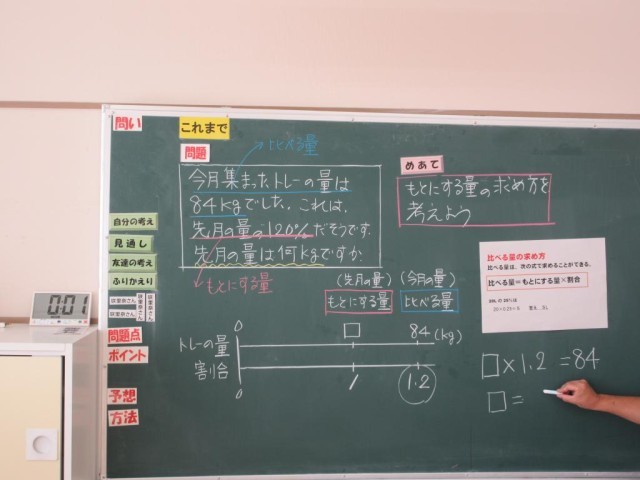 問い
これまで
比べる量
問題
今月集まったトレーの量は
84kgでした。これは、
先月の量の120%だそうです。
先月の量は何kgですか。
もとにする量
めあて
もとにする量の求め方を
考えよう
自分の考え
見通し
友達の考え
ふりかえり
問題点
ポイント
予想
方法
0:01
(先月の量) (今月の量)
もとにする量 比べる量
0 □ 84 (kg)
トレーの量
割合
0 1 1.2
比べる量の求め方
比べる量は、次の式で求めることができる。
比べる量=もとにする量×割合
□×1.2=84
□=